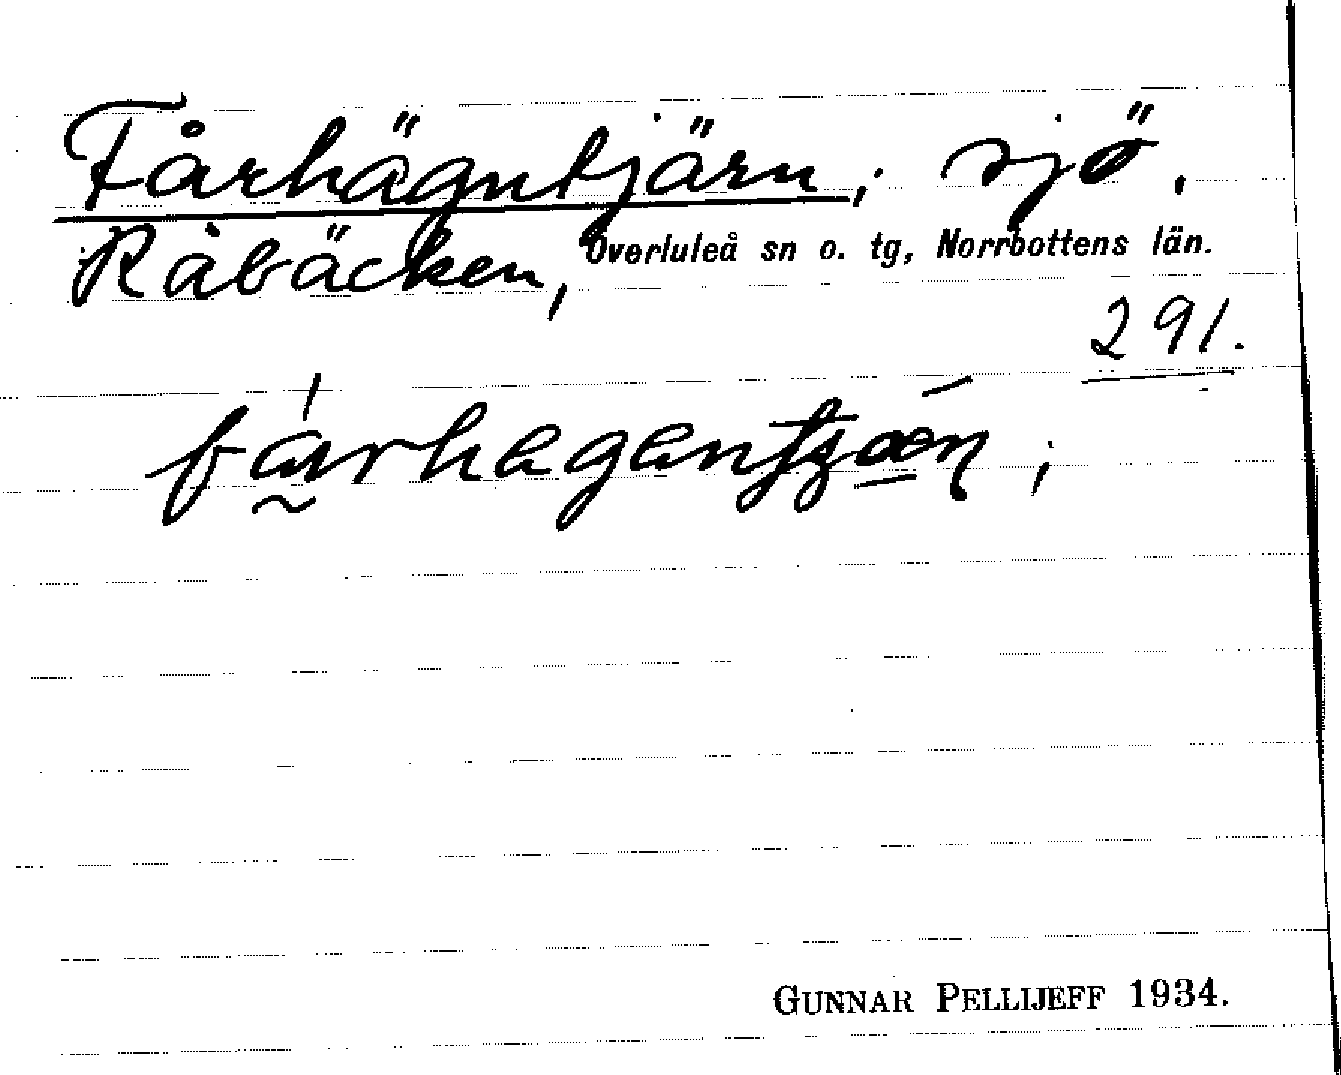 Fårhägntjärn; sjö.
Råbäcken, Överluleå sn o. tg, Norrbottens län.
291.
GUNNAR PELLIJEFF 1934.